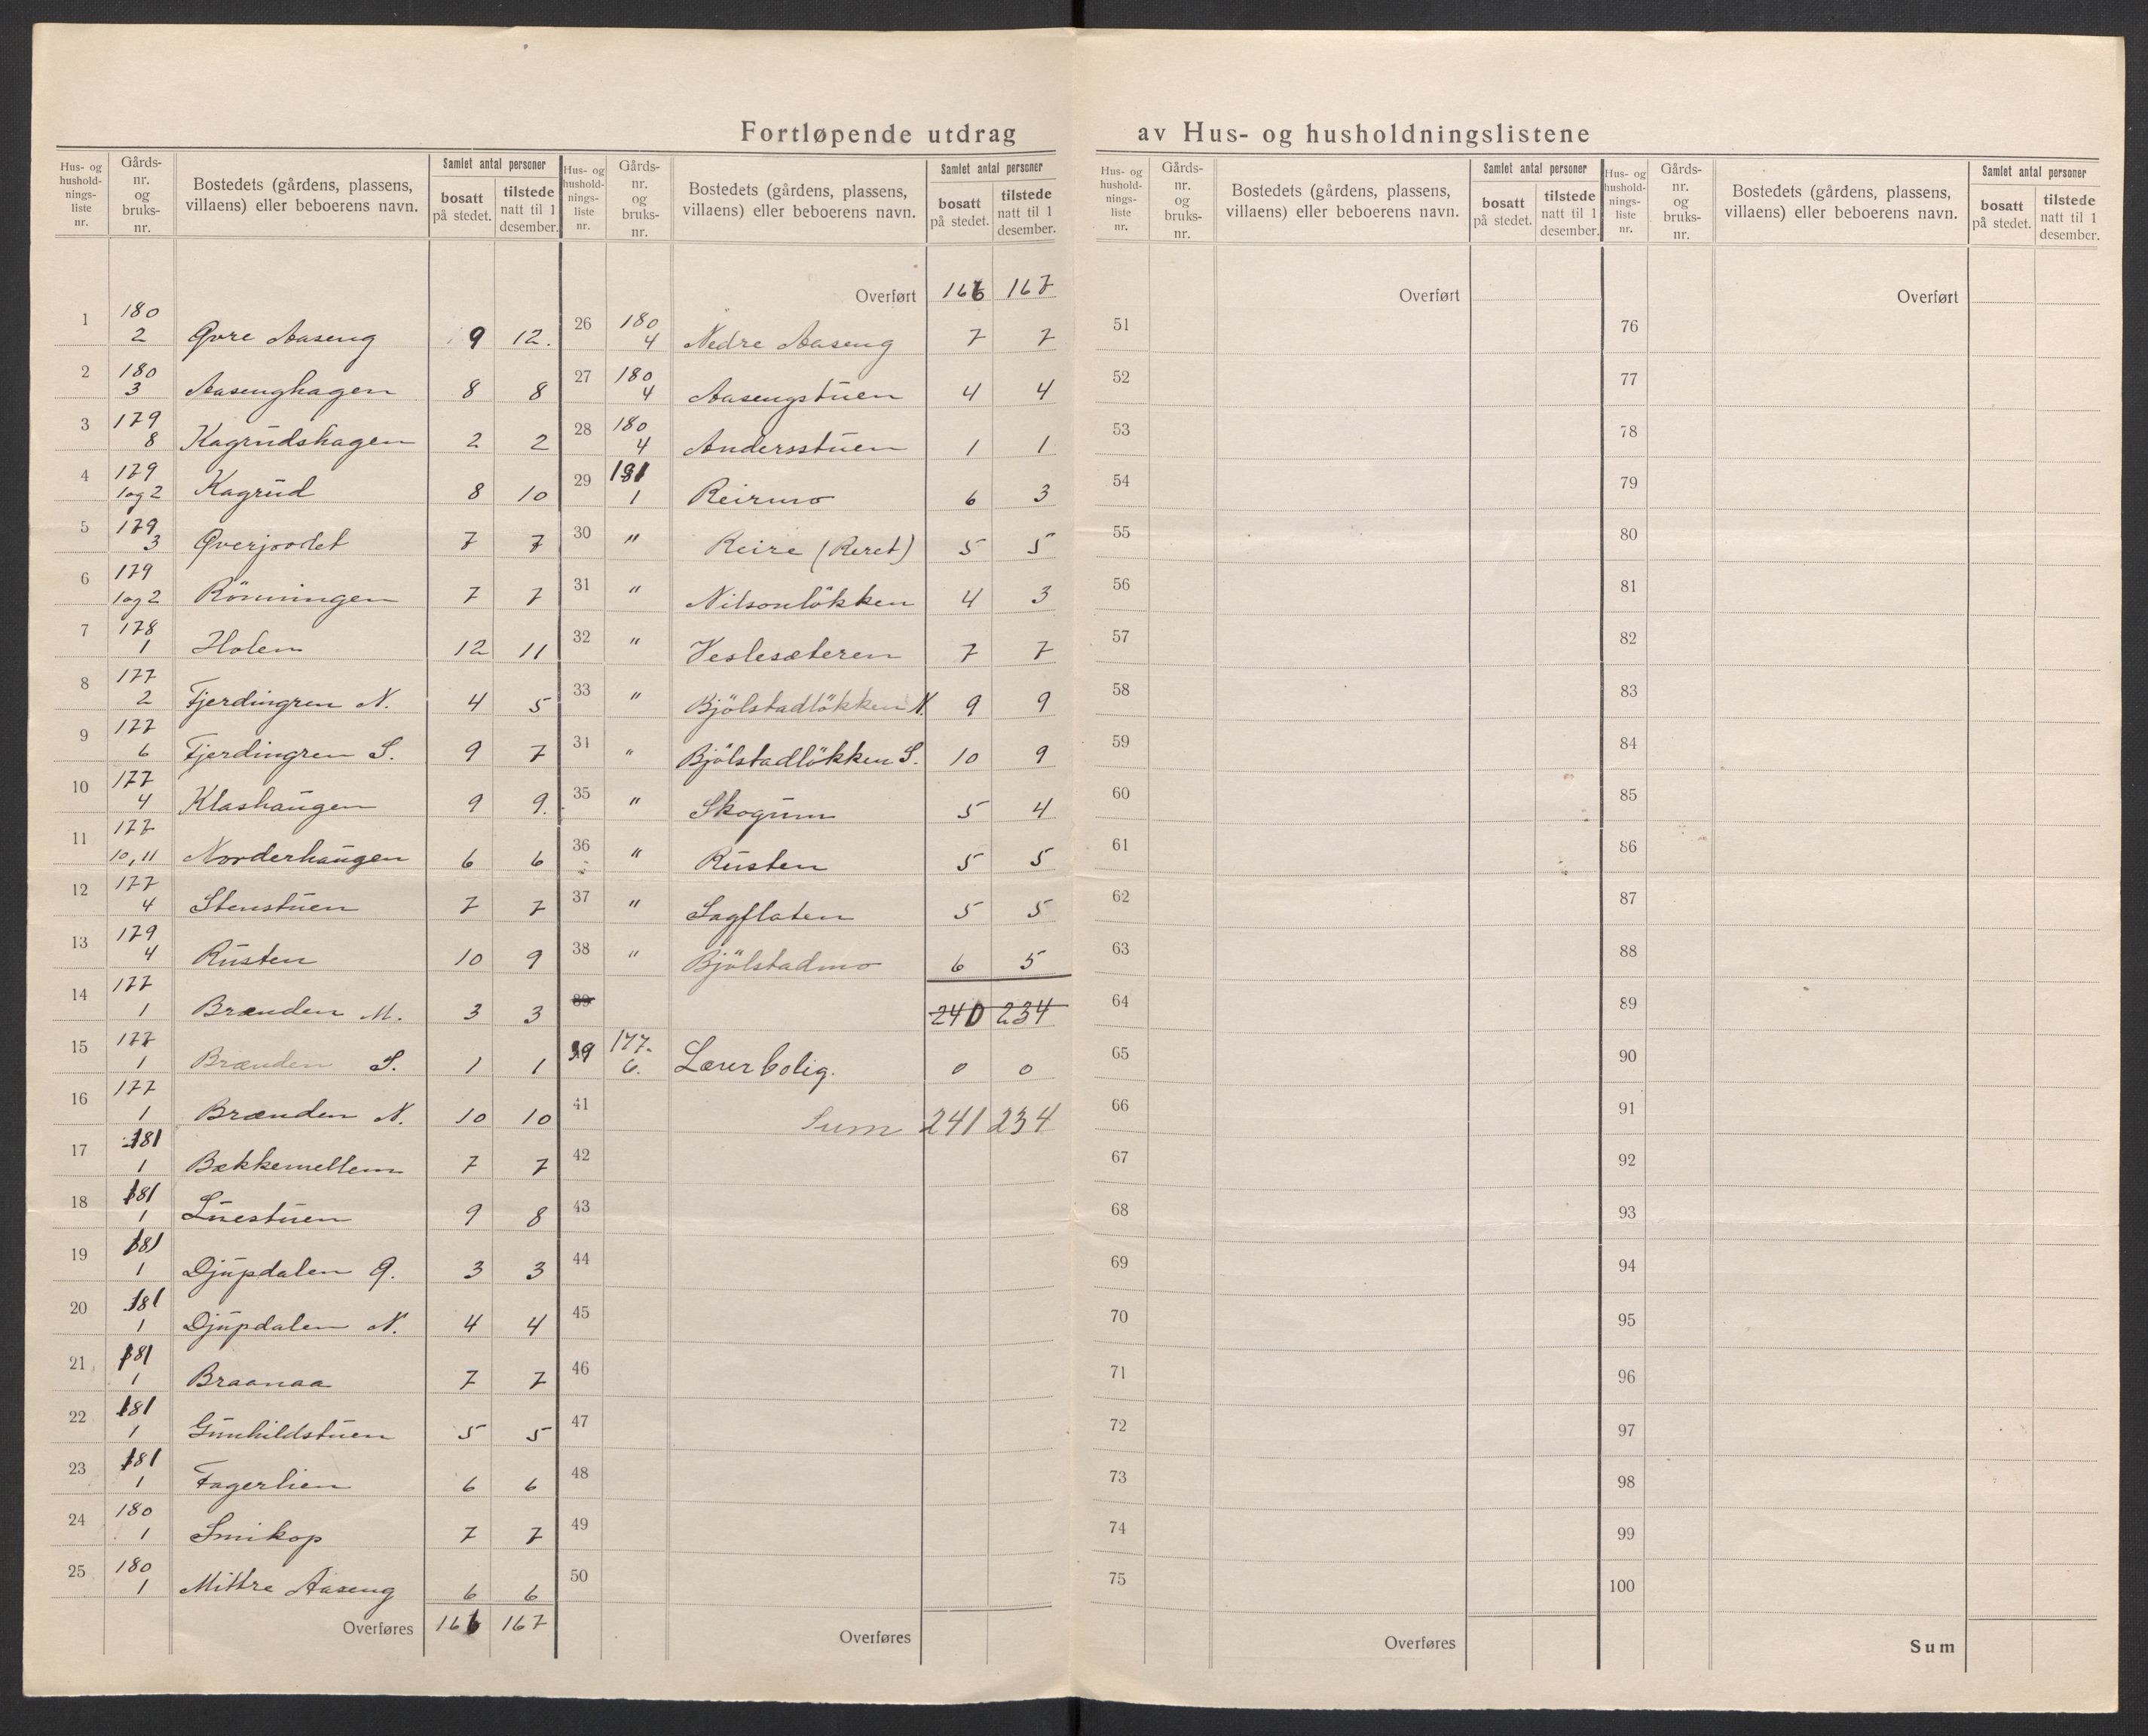 Fortløpende utdrag av Hus- og husholdningslistene
Hus- og hushold-nings-liste nr. Gårds-nr. og bruks-nr. Bostedets (gårdens, plassens, villaens) eller beboerens navn. Samlet antal personer bosatt på stedet. tilstede natt til 1 desember.
1 180 2 Øvre Aaseng 9 12.
2 180 3 Aasenghagen 8 8
3 179 8 Kagrudshagen 2 2
4 179 1og2 Kagrud 8 10
5 179 3 Øverjordet 7 7
6 179 1og2 Rönningen 7 7
7 178 1 Holen 12 11
8 177 2 Fjerdingren N. 4 5
9 177 6 Fjerdingren S. 9 7
10 177 4 Klashaugen 9 9.
11 177 10,11 Norderhaugen 6 6
12 177 4 Stenstuen 7 7
13 179 4 Rusten 10 9
14 177 1 Brænden M. 3 3
15 177 1 Brænden S. 1 1
16 177 1 Brænden N. 10 10
17 181 1 Bækkemellem 7 7
18 181 1 Luestuen 9 8
19 181 1 Djupdalen Ø. 3 3
20 181 1 Djupdalen N. 4 4
21 181 1 Braanaa 7 7
22 181 1 Gunhildstuen 5 5
23 181 1 Fagerlien 6 6
24 180 1 Smikop 7 7
25 180 1 Mittre Aaseng 6 6
Overføres 166 167
Hus- og hushold-nings-liste nr. Gårds-nr. og bruks-nr. Bostedets (gårdens, plassens, villaens) eller beboerens navn. Samlet antal personer bosatt på stedet. tilstede natt til 1 desember.
Overført 166 167
26 180 4 Nedre Aaseng 7 7
27 180 4 Aasengstuen 4 4
28 180 4 Andersstuen 1 1
29 181 1 Reirmo 6 3
30 " Reire (Reret) 5 5
31 " Nilsonlökken 4 3
32 " Veslesæteren 7 7
33 " Bjölstadlökken N. 9 9
34 " Bjölstadlökken S. 10 9
35 " Skogum 5 4
36 " Rusten 5 5
37 " Sagflaten 5 5
38 " Bjölstadmo 6 5
39 240 234
39 177. 6. Lærerbolig. 0 0
41 Sum 241 234
42
43
44
45
46
47
48
49
50
Overføres
Hus- og hushold-nings-liste nr. Gårds-nr. og bruks-nr. Bostedets (gårdens, plassens, villaens) eller beboerens navn. Samlet antal personer bosatt på stedet. tilstede natt til 1 desember.
Overført
51
52
53
54
55
56
57
58
59
60
61
62
63
64
65
66
67
68
69
70
71
72
73
74
75
Overføres
Hus- og hushold-nings-liste nr. Gårds-nr. og bruks-nr. Bostedets (gårdens, plassens, villaens) eller beboerens navn. Samlet antal personer bosatt på stedet. tilstede natt til 1 desember.
Overført
76
77
78
79
80
81
82
83
84
85
86
87
88
89
90
91
92
93
94
95
96
97
98
99
100
Sum